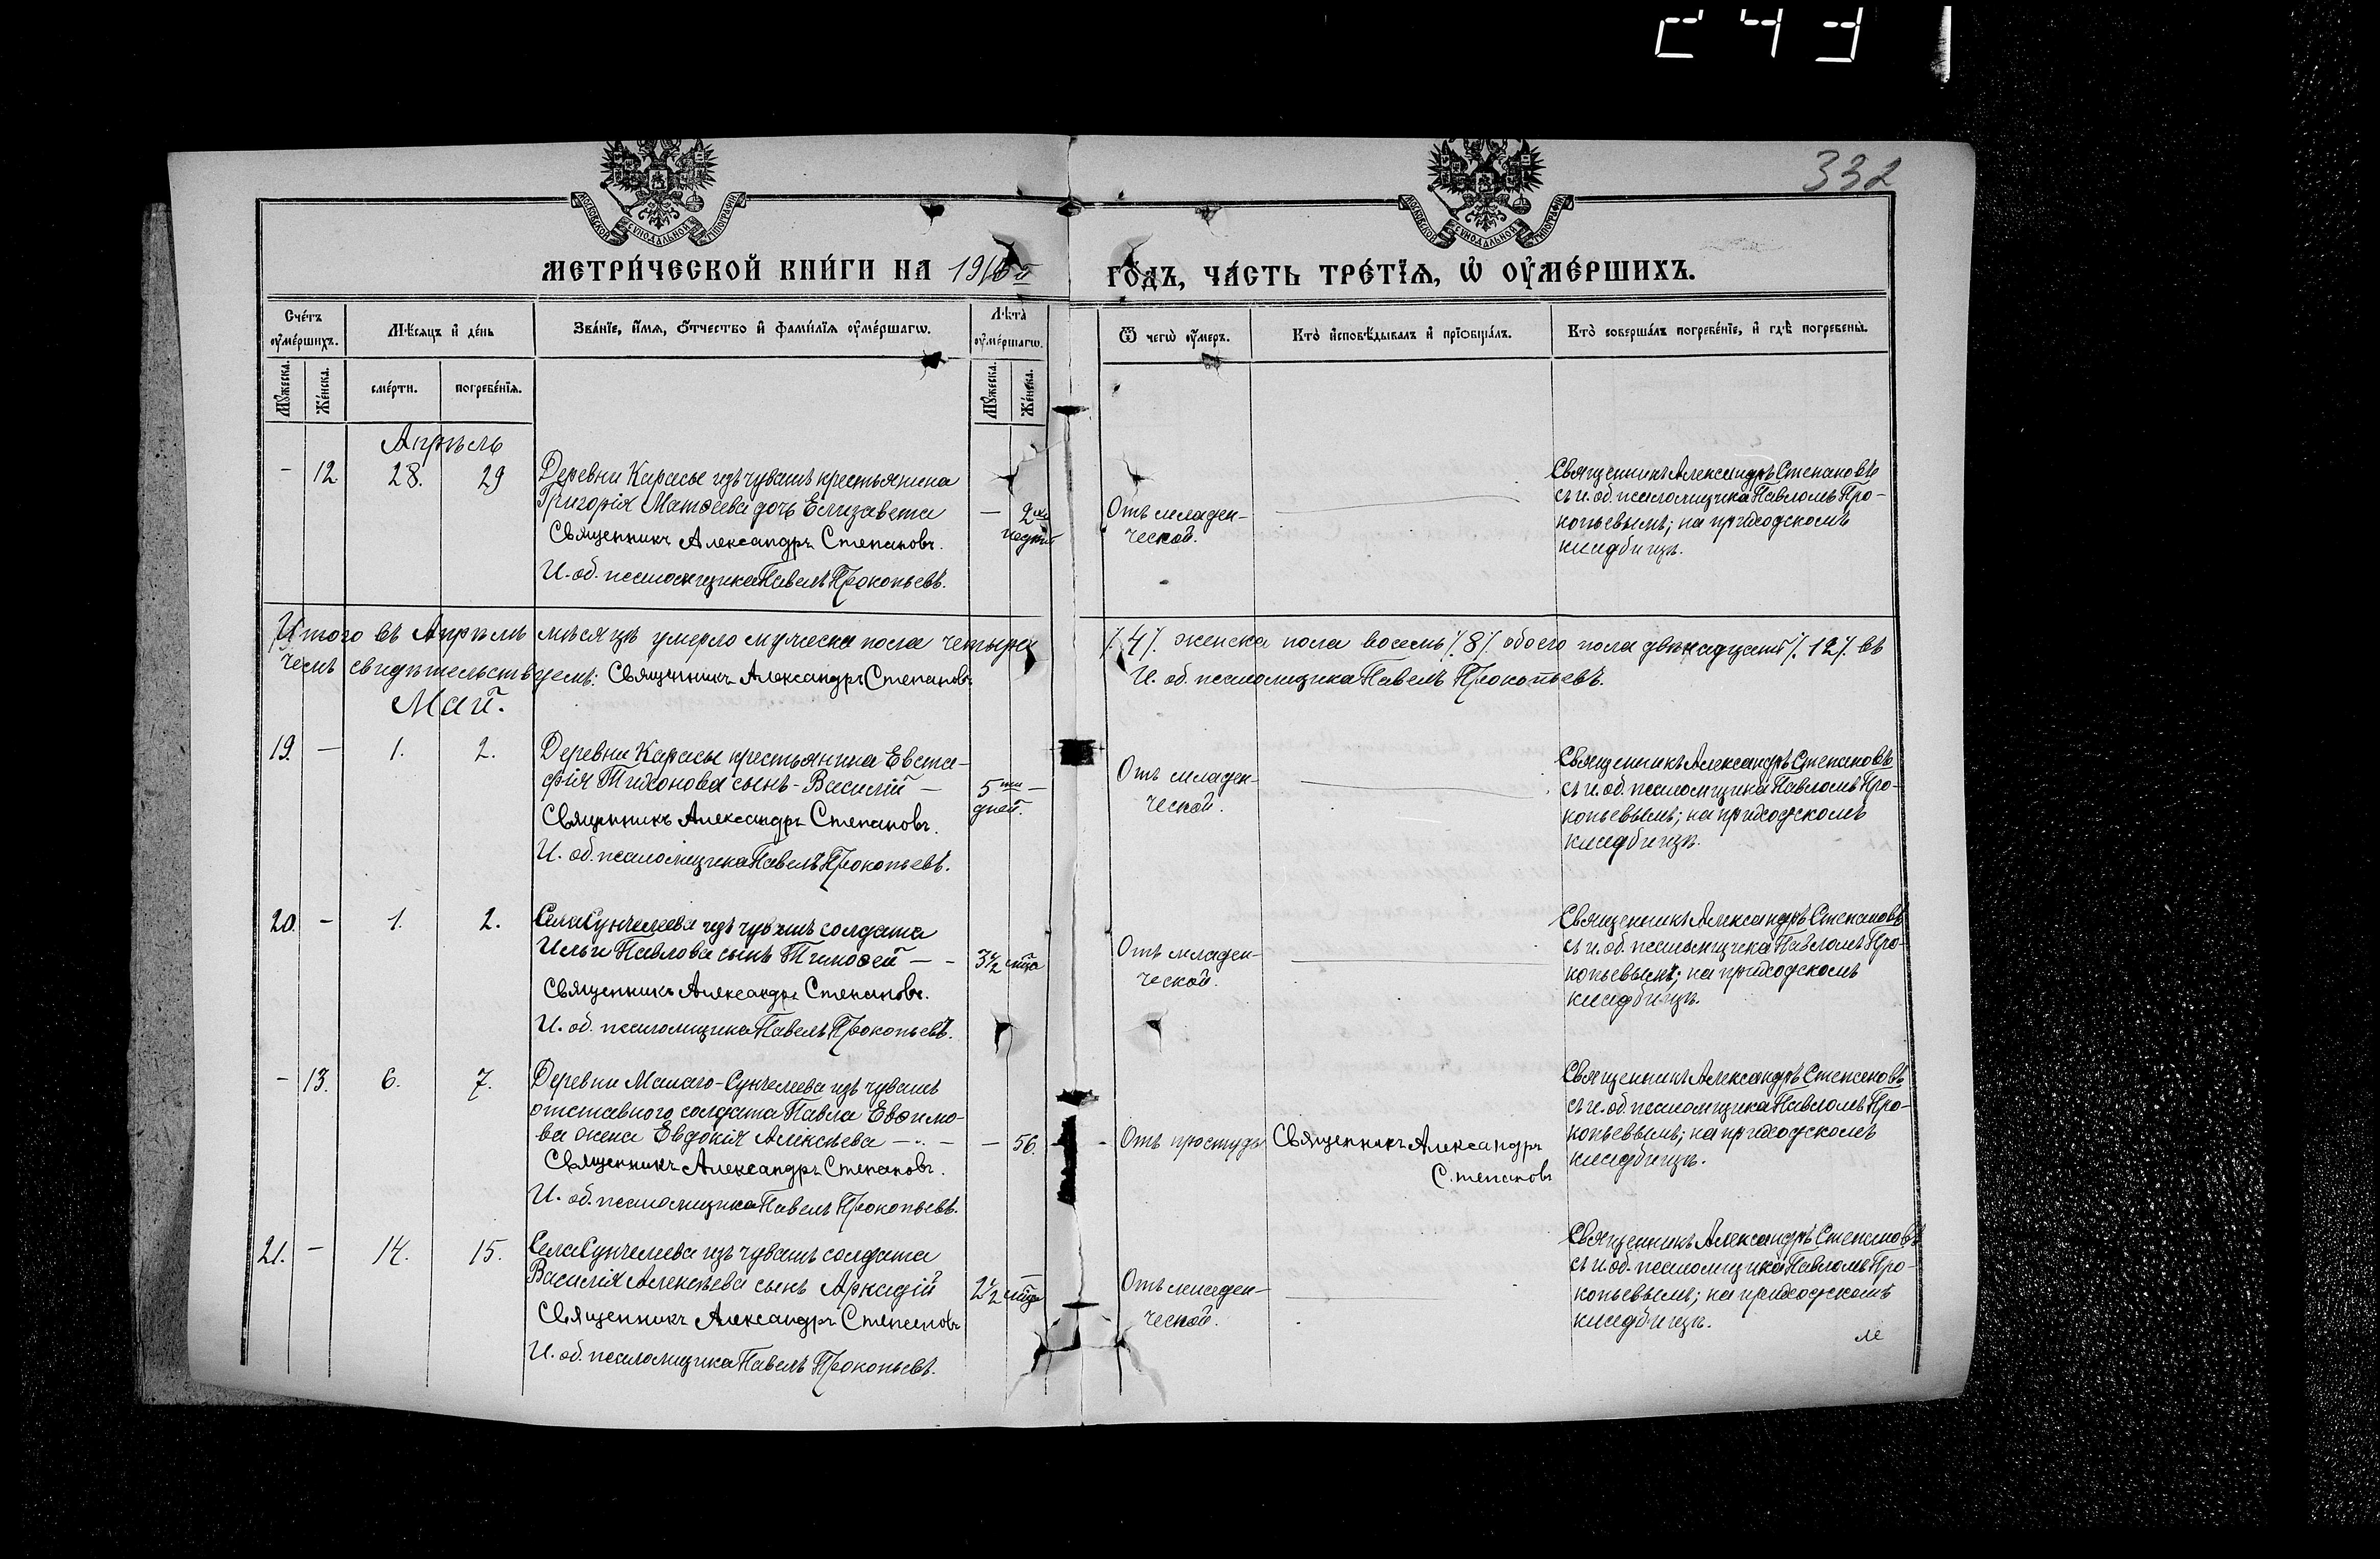 243
332
МОСКОВСКОЙ СѴНОДАЛЬНОЙ ТИПОГРАФІИ
МОСКОВСКОЙ СѴНОДАЛЬНОЙ ТИПОГРАФІИ
МЕТРИ́ЧЕСКОЙ КНИ́ГИ НА
ГО́ДЪ, ЧА́СТЬ ТРЕ́ТЇѦ, Ѡ҆ ОУ҆МЕ́РШИХЪ.
Сче́тъ оу҆ме́ршихъ.
Мѣ́сяцъ и҆ де́нь
Зва́нїе, и҆́мѧ, ѻ҆́тчество и҆ фами́лїѧ оу҆ме́ршагѡ.
Лѣ́та оу҆ме́ршагѡ.
Ѿ чегѡ̀ оу҆́меръ.
Кто̀ и҆сповѣ́дывалъ и҆ прїѡбща́лъ.
Кто̀ соверша́лъ погребе́нїе, и҆ гдѣ̀ погребены̀.
Мꙋ́жеска. Же́нска. сме́рти. погребе́нїѧ. Мꙋ́жеска. Же́нска.
Апрѣль
- 12 28. 29 Деревни Карасы изъ чувашъ крестьянина
Григорія Матѳеева дочь Елизавета
Священникъ Александръ Степановъ.
И. об. псаломщика Павелъ Прокопьевъ.
— 2хъ
недѣль
Отъ младен-
ческой.
Священникъ Александръ Степановъ
съ и. об. псаломщика Павломъ Про-
копьевымъ; на приходскомъ
кладбищѣ.
Итого въ Апрѣлѣ мѣсяцѣ умерло мужеска пола четыре ./.4./. женска пола восемь ./.8./. обоего пола двѣнадцать ./.12./. въ
чемъ свидѣтельствуемъ: Священникъ Александръ Степановъ И. об. псаломщика Павелъ Прокопьевъ.
Май.
19. — 1. 2. Деревни Карасы крестьянина Евста-
фія Тихонова сынъ - Василій —
Священникъ Александръ Степановъ.
И. об. псаломщика Павелъ Прокопьевъ.
5ти —
дней.
Отъ младен-
ческой.
Священникъ Александръ Степановъ
съ и. об. псаломщика Павломъ Про-
копьевымъ; на приходскомъ
кладбищѣ.
20. - 1. 2. Села Сунчелеева изъ чувашъ солдата
Ильи Павлова сынъ Тимоѳей — -
Священникъ Александръ Степановъ.
И. об. псаломщика Павелъ Прокопьевъ.
3½ мѣца
Отъ младен-
ческой.
Священникъ Александръ Степановъ
съ и. об. псаломщика Павломъ Про-
копьевымъ; на приходскомъ
кладбищѣ.
- 13. 6. 7. Деревни Малаго-Сунчелеева изъ чувашъ
отставного солдата Павла Евѳимо-
ва жена Евдокія Алексѣева —
Священникъ Александръ Степановъ.
И. об. псаломщика Павелъ Прокопьевъ.
— 56.
Отъ простуды
Священникъ Александръ
Степановъ
Священникъ Александръ Степановъ
съ и. об. псаломщика Павломъ Про-
копьевымъ; на приходскомъ
кладбищѣ.
21. - 14. 15. Села Сунчелеева изъ чувашъ солдата
Василія Алексѣева сынъ Аркадій
Священникъ Александръ Степановъ
И. об. псаломщика Павелъ Прокопьевъ.
2½ мѣца
Отъ младен-
ческой.
Священникъ Александръ Степановъ
съ и. об. псаломщика Павломъ Про-
копьевымъ; на приходскомъ
кладбищѣ.